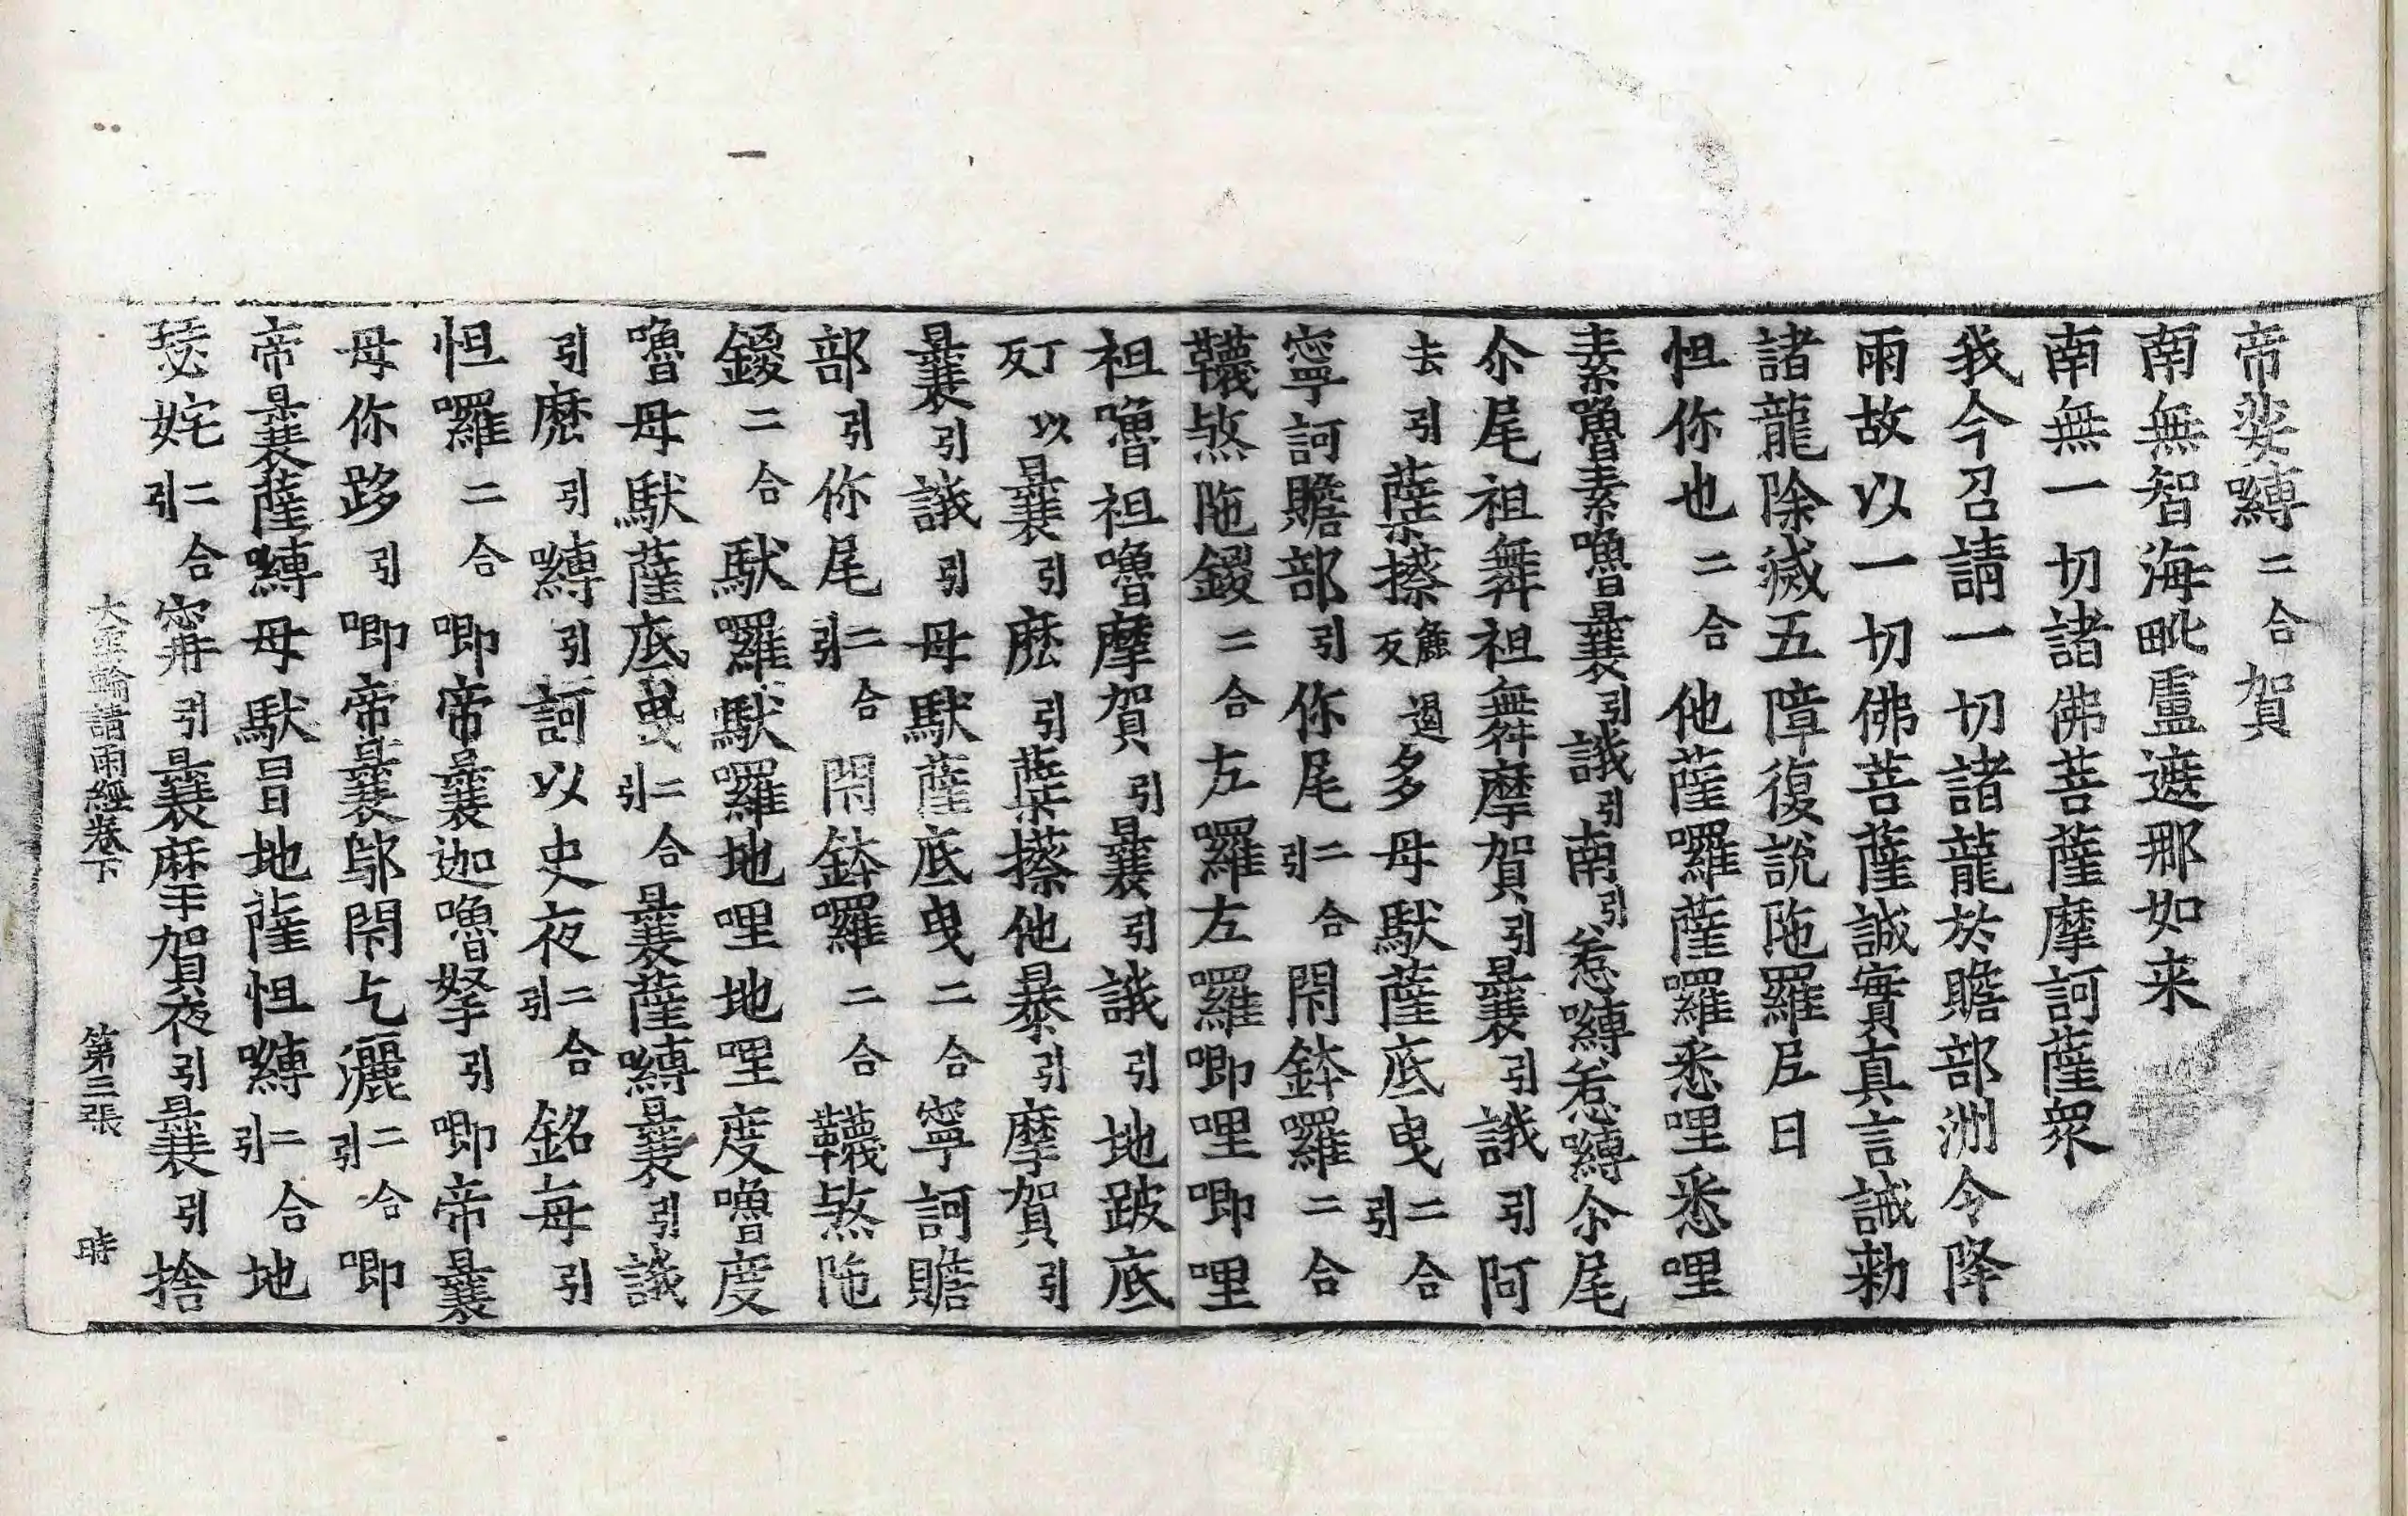 帝娑嚩二合賀
南無智海毗盧遮那如来
南無一切諸佛菩薩摩訶薩衆
我今召請一切諸龍於贍部洲令降
雨故以一切佛菩薩誠實真言誡勑
諸龍除滅五障復說陁羅𡰱曰
怛你也二合他薩囉薩囉悉哩悉哩
素嚕素嚕曩引誐引南引惹嚩惹嚩尒尾
尒尾祖舞祖舞摩賀引曩引誐引阿
去引蘖搽反多母馱薩底曳二合引
寧訶贍部引你尾二合引閇鉢羅二合
韈煞陁鍐二合左羅左羅唧哩唧哩
祖嚕祖嚕摩賀引曩引誐引地跛底
丁以反曩引麽引蘖搽他曩引摩賀引
曩引誐引母馱薩底曳二合寧訶贍
部引你尾二合引閇鉢囉二合韈煞陁
鍐二合馱囉馱囉地哩地哩度嚕度
嚕母馱薩底曳二合引曩薩嚩曩引誐
引麽引嚩引訶以史夜二合引銘每引
怛囉二合唧帝曩迦嚕拏引唧帝曩
母你跢引唧帝曩鄔閇乞灑二合引唧
帝曩薩嚩母馱冒地薩怛嚩二合引地
瑟姹二合引寗引曩麽賀夜引曩引捨
大雲輪請雨經卷下 第三張 時